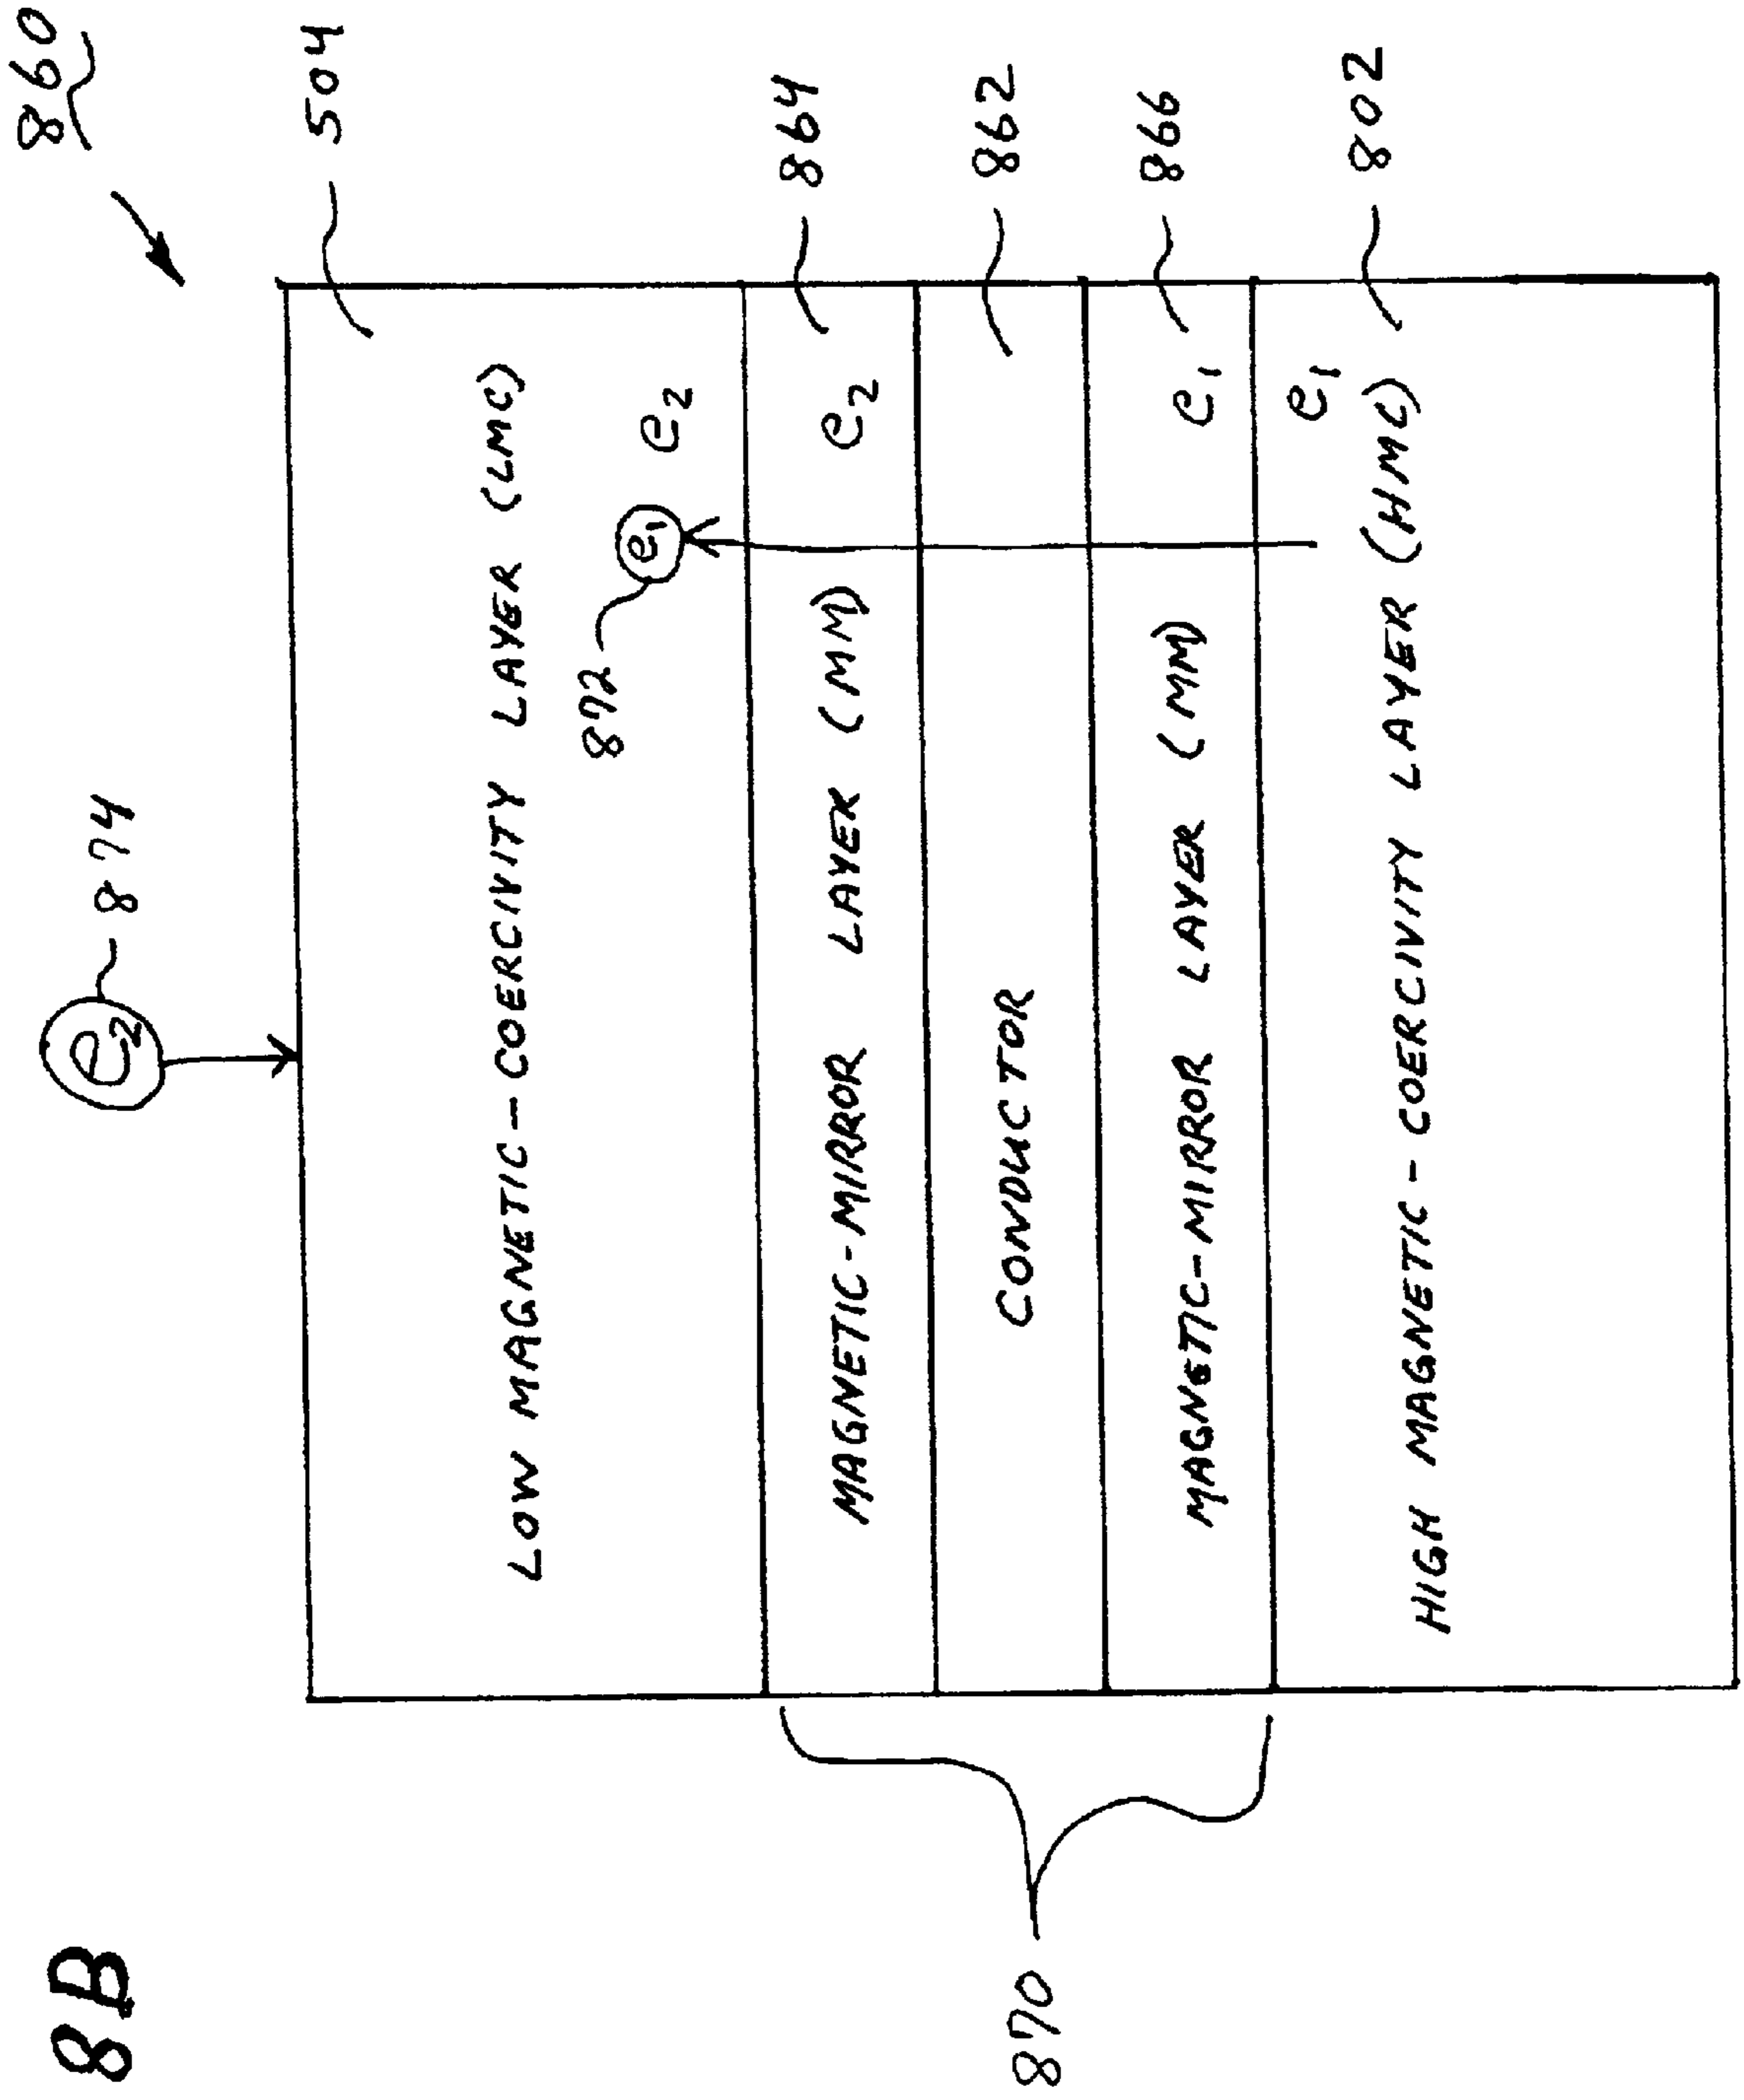 8B
860
e2
874
504
LOW MAGNETIC-COERCIVITY LAYER (LMC)
872
e1
e2
864
MAGNETIC-MIRROR LAYER (MM)
e2
862
CONDUCTOR
870
866
MAGNETIC-MIRROR LAYER (MM)
e1
802
e1
HIGH MAGNETIC-COERCIVITY LAYER (HMC)